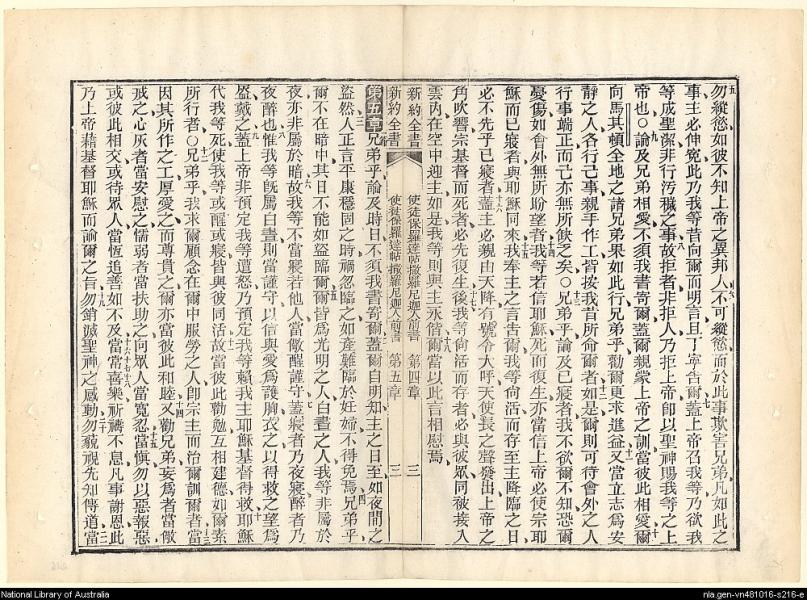 勿縱慾如彼不知上帝之異邦人不可縱慾而於此事欺害兄弟凡如此之
事主必伸寃此乃我等昔向爾而明言且丁寧告爾蓋上帝召我等乃欲我
等成聖潔非行汚穢之事故拒者非拒人乃拒上帝卽以聖神賜我等之上
帝也○論及兄弟相愛不須我書寄爾蓋爾親蒙上帝之訓當彼此相愛爾
向馬其頓全地之諸兄弟果如此行兄弟乎勸爾更求進益又當立志爲安
靜之人各行己事親手作工皆按我昔所命爾者如是爾則可待會外之人
行事端正而己亦無所缺乏矣○兄弟乎論及已寢者我不欲爾不知恐爾
憂傷如會外無所盼望者我等若信耶穌死而復生亦當信上帝必使宗耶
穌而已寢者與耶穌同來我奉主之言告爾我等尙活而存至主降臨之日
必不先乎已寢者蓋主必親由天降有號令大呼天使長之聲發出上帝之
角吹響宗基督而死者必先復生後我等尙活而存者必與彼眾同被接入
雲內在空中迎主如是我等則與主永偕爾當以此言相慰焉
新約全書 使徒保羅達帖撒羅尼迦人前書 第四章 三
新約全書 使徒保羅達帖撒羅尼迦人前書 第五章 三
第五章 兄弟乎論及時日不須我書寄爾蓋爾自明知主之日至如夜間之
盜然人正言平康穩固之時禍忽臨之如產難臨於妊婦不得免焉兄弟乎
爾不在暗中其日不能如盜臨爾爾皆爲光明之人白晝之人我等非屬於
夜亦非屬於暗故我等不當寢若他人當儆醒謹守蓋寢者乃夜寢醉者乃
夜醉也惟我等旣屬白晝則當謹守以信與愛爲護胸衣之以得救之望爲
盔戴之蓋上帝非預定我等遭怒乃預定我等賴我主耶穌基督得救耶穌
代我等死使我等或醒或寢皆與彼同活故當彼此勸勉互相建德如爾素
所行者○兄弟乎我求爾顧念在爾中服勞之人卽宗主而治爾訓爾者當
因其所作之工厚愛之而尊貴之爾亦當彼此和睦又勸兄弟妄爲者當儆
戒之心灰者當安慰之懦弱者當扶助之向眾人當寬忍當愼勿以惡報惡
或彼此相交或待眾人當恆追善如不及當常喜樂祈禱不息凡事謝恩此
乃上帝藉基督耶穌而諭爾之旨勿銷滅聖神之感動勿藐視先知傳道當
National Library of Australia
nla.gen-vn481016-s216-e